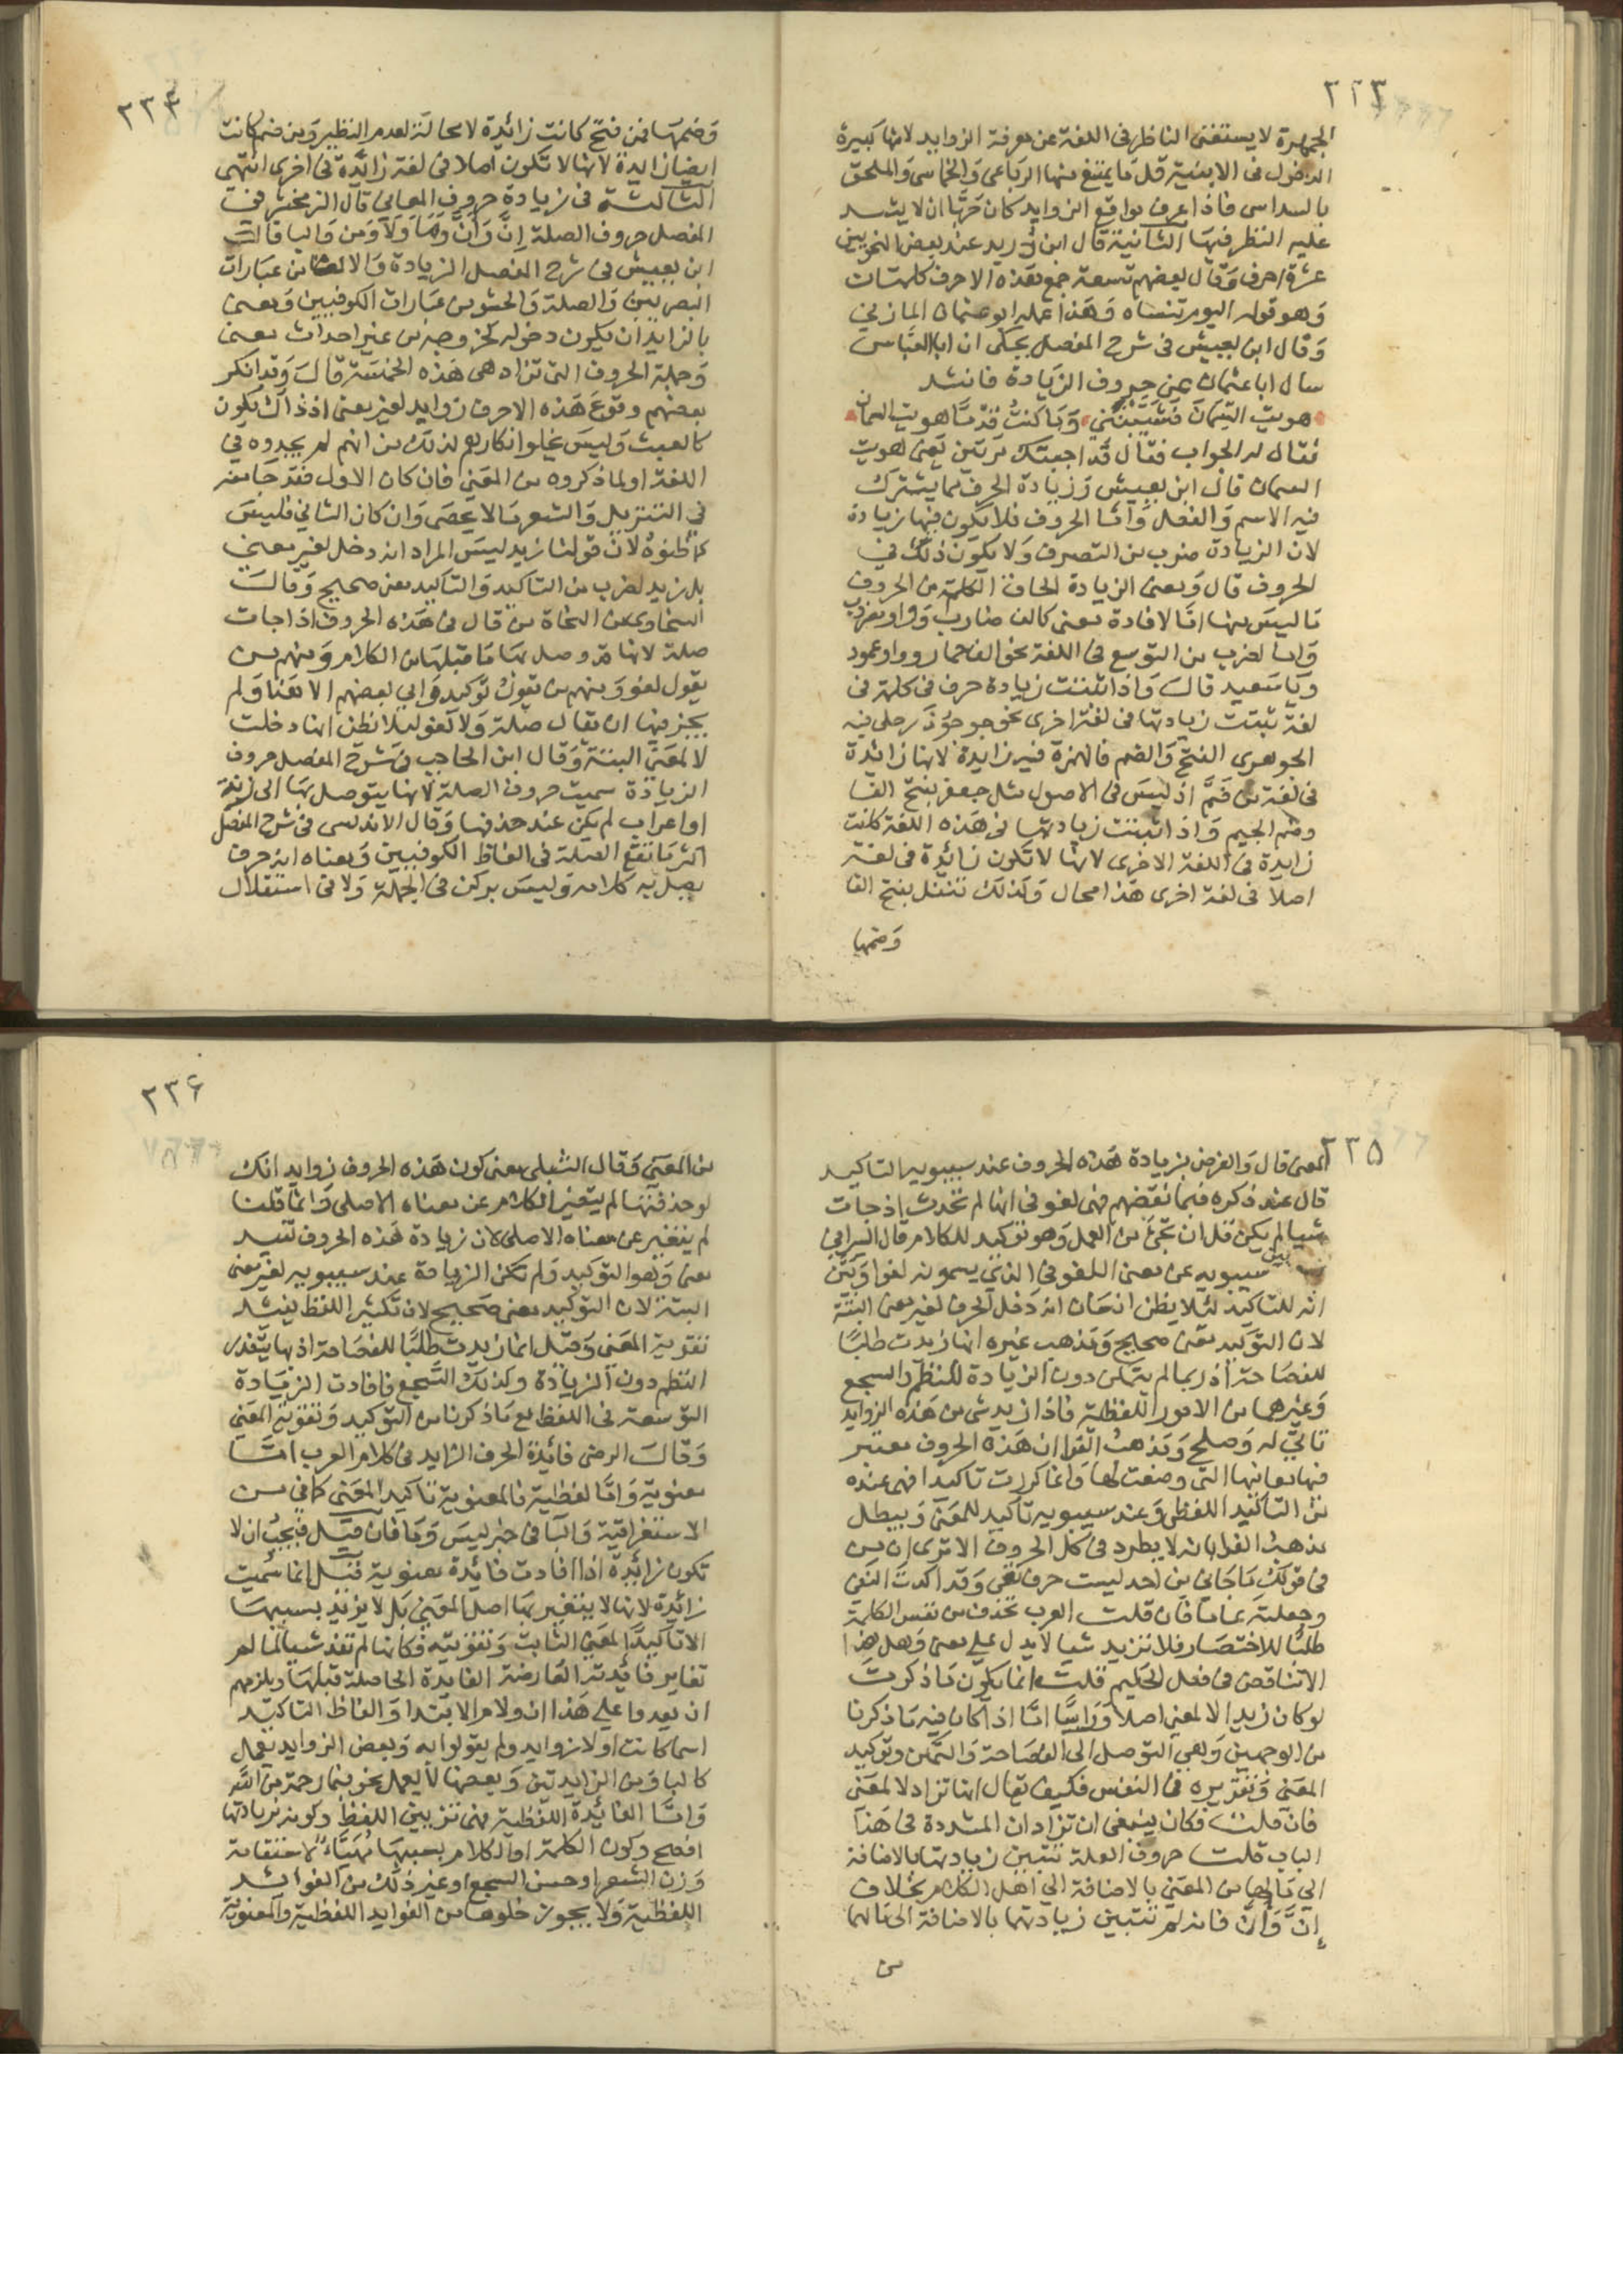 ٢٢٣
الجمهرة لا يستغنى الناظر فى اللغة عن معرفة الزوايد لانها كبيرة
الدخول فى الابنية قل ما يمتنع منها الرباعى وَالخماسى وَالملحق
بالسداسى فاذا عرف مواقع الزوايد كان حريّا ان لا يشد
عليه النظر فيها الثانية قال ابن دريد عند بعض النحويين
عشرة احرف وَقال بعضهم تسعة جمع هذه الاحرف كلمتان
وَهو قوله اليوم تنساه وَهذا عمله ابو عثمان المازني
وَقال ابن يعيش فى شرح المفصل يحكى ان ابا العَبّاس
سال ابا عثمان عن حروف الزيادة فانشد
هويت السّمان فَشَيَّبْنَنى وَمَا كنتُ قدْمًا هويت السمان
فقال له الجواب فقال قد اجبتك مرتين يَعنى هويت
السمان قال ابن يعيش وَزيادة الحرف مما يشترك
فيه الاسم وَالفعل وَأمّا الحروف فلا يكون فيها زيادة
لان الزيادة ضرب من التصرف وَلا يكون ذلك في
الحروف قال وَمعنى الزيادة الحاق الكلمة من الحروف
مَا ليسَ منها امّا لافادة معنى كالف ضارب وَواو مضروب
وَاما لضرب من التوسع فى اللغة نحو الف حمار وواو عمود
وَيا سَعيد قالَ وَاذا ثبتت زيادة حرف فى كلمة فى
لغة ثبتت زيادتها فى لغة اخرى نحو جوجؤذر حكى فيه
الجوهرى الفتح وَالضم فالهمزة فيه زايدة لانها زائدة
فى لغة من فَتَح اذ ليسَ فى الاصول مثل جعفر بفتح الفا
وضم الجيم وَاذا ثبتت زيادتها فى هَذه اللغة كانت
زايدة فى اللغة الاخرى لانها لا تكون زائدة فى لغة
اصلا فى لغة اخرى هَذا محال وَكذلك تتفل بفتح الفا
وَضمها
٢٣٤
وَضمهَا فمن فتحَ كانت زائدة لا محالَة لعدم النظير وَمن ضم كانت
ايضا زايدة لانها لا تكون اصلا فى لغة زائدة فى اخرى انتهى
الثالثة فى زيادة حروف المعانى قال الزمخشرى في
المفصل حروف الصلة إنَّ وَأنَّ وَمَا وَلَا وَمن وَالبا قالَ
ابن يعيش فى شرح المفصل الزيادة وَالالغا من عبَارات
البصريينَ وَالصلة وَالحشو من عبَارات الكوفيين وَيعنى
بالزايد ان يكون دخوله كخروجه من غير احداث معنى
وَجملة الحروف التى تزاد هى هَذه الخمسَة قالَ وَقد انكر
بعضهم وقوعَ هَذه الاحرف زوايد لغير معنى اذ ذاك يكون
كالعبث وَليسَ يخلوا انكارهم لذلك من انهم لم يجدوه في
اللغة او لما ذكروه من المعنى فان كان الاول فقد جَا منه
في التنزيل وَالشعر مَا لا يحصَى وَان كان الثانى فليسَ
كما ظنوه لانّ قولنا زيد ليسَ المراد انه دخل لغير معنى
بل زيد لضرب من التاكيد وَالتاكيد معنى صحيح وَقالَ
السخاوى من النحاة من قال فى هَذه الحروف اذا جات
صلة لانها قد وصل بهَا مَا قبلهَا من الكلام وَمنهم من
يقول لغو وَمنهم من يقول توكيد وَابى بعضهم الا هَذا وَلم
يجز فيها ان يقال صلة وَلا لغو ليلا نظن انها دخلت
لا لمعنى البتة وَقال ابن الحاجب فى شرح المفصل حروف
الزيادة سميت حروف الصلة لانها يتوصل بهَا الى زنة
او اعراب لم يكن عند حذفها وَقال الاندلسى فى شرح المفصل
اكثر مَا تقع الصلة فى الفاظ الكوفيين وَمعناه انه حرف
يصل به كلامه وَليسَ بركن فى الجملة وَلا فى استقلال
٢٣٥
المعنى قال وَالغرض بزيادة هَذه الحروف عند سيبويه التاكيد
قال عند ذكره فبما نقضهم فهى لغو فى انها لم تحدث اذ جات
شيا لم يكن قبل ان تجئ من العمل وَهو توكيد للكلام قال السيرافى
بين سيبويه عن معنى اللغو فى الذى يسمونه لغوا وَبَيّن
انه للتاكيد لئلا يظن انسَان انه دَخل الحرف لغير معنى البتة
لان التوكيد معنى صحيح وَمذهب غيره انها زيدت طلبًا
للفصَاحة اذ ربما لم يتمكن دون الزيادة للنظم وَالسجع
وَغيرهما من الامور اللفظية فاذا زيد شى من هَذه الزوايد
تاتىّ له وَصلح وَمذهبُ الفرا ان هَذه الحروف معتبر
فيها معانيها التى وضعت لها وَانما كررت تاكيدا فهى عنده
من التاكيد اللفظى وَعند سيبويه تاكيد للمعنى وَيبطل
مذهبُ الفرا بانه لا يطرد فى كل الحروف الا ترى ان من
فى قولك مَا جَانى من احد ليست حرف نفى وَقد اكدتَ النفى
وجعلته عاما فان قلت العرب تحذف من نفس الكلمة
طلبًا للاختصَار فلا تزيد شيا لا يدل على معنى وَهل هذا
الا تناقض فى فعل الحكيم قلت انما يكون مَا ذكرت
لو كان زيد لا لمعنى اصلا وَرَاسًا امّا اذا كان فيه مَا ذكرنا
من الوجهين وَهى التوصل الى الفصَاحة وَالتمكن وَتوكيد
المعنى وَتقريره فى النفس فكيف يقال انها تزاد لا لمعنى
فان قلت فكان ينبغى ان تزاد ان المشددة فى هَذا
الباب قلت حروف الصلة تتبين زيادتها بالاضافة
الى مَا لها من المعنى بالاضافة الى اهل الكلام بخلاف
إنَّ وَأنَّ فانه لم تتبين زيادتهما بالاضافة الى مَا لهما
من
٢٣٦
من المعنى وَقال النيلى معنى كون هَذه الحروف زوايد انك
لو حذفتهَا لم يتغير الكلام عن معناه الاصلى وَانما قلنا
لم يتغير عن معناه الاصلى لان زيادة هَذه الحروف تفيد
معنى وَهو التوكيد وَلم تكن الزيادة عند سيبويه لغير معنى
البتة لان التوكيد معنى صحيح لان تكثير اللفظ يفيد
تقوية المعنى وَقيل انما زيدت طلبًا للفصَاحة اذ بها يتعذر
النظم دون الزيادة وكذلك السّجع فافادت الزيَادة
التوسعة فى اللفظ مع مَا ذكرنا من التوكيد وَتقوية المعنى
وَقالَ الرضى فائدة الحرف الزايد فى كلام العرب امّا
معنوية وَامّا لفظية فالمعنوية تاكيد المعنى كما فى من
الاستغراقية وَالبا فى خبر ليسَ وَمَا فان قيل فيجبُ ان لا
تكون زائدة اذا افادت فائدة معنوية قيل انما سُميت
زائدة لانها لا يتغير بهَا اصل المعنى بل لا يزيد بسببهَا
الا تاكيد المعنى الثابت وَتقويته فكانها لم تفد شيا لما لم
تغاير فائدته العَارضة الفايدة الحاصلة قبلهَا ويلزمهم
ان يعدوا على هَذا ان ولام الابتدا وَالفاظ التاكيد
اسما كانت او لا زوايد ولم يقولوا به وَبعض الزوايد يعمل
كالبا وَمن الزايدتين وَبعضها لا يعمل نحو فبما رحمة من الله
وَامّا الفائدة اللفظية فهى تزيين اللفظ وَكونه بزيادتها
افصح وَكون الكلمة او الكلام بسببهَا مُهَيَّاءً لاستقامة
وَزن الشعر او حسن السجع او غير ذلك من الفوائد
اللفظية وَلا يجوز خلوها من الفوايد اللفظية وَالمعنوية